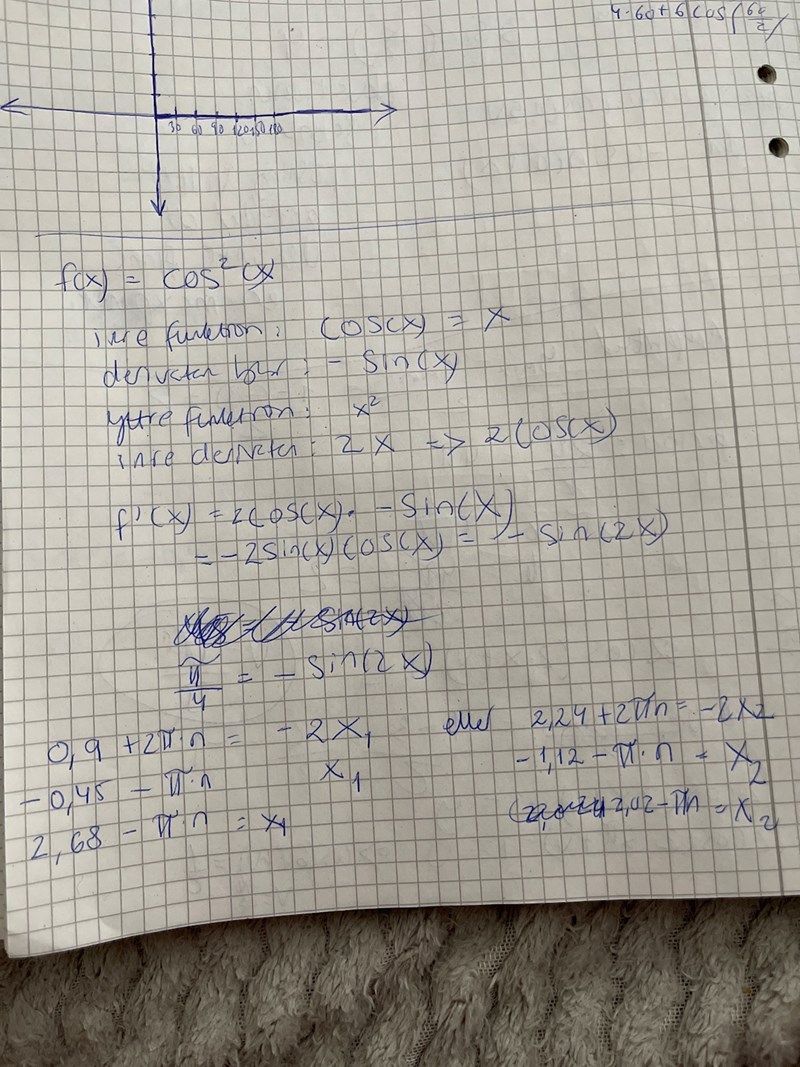 4·60+6 cos(60/2)
30 60 90 120 150 180
f(x) = cos²(x)
inre funktion: cos(x) = x
derivatan blir: - sin(x)
yttre funktion: x²
inre derivatan: 2x => 2cos(x)
f'(x) = 2cos(x)· -sin(x)
= -2sin(x)cos(x) = - sin(2x)
π/4 = - sin(2x)
0,9 + 2π·n = -2x₁ eller 2,24 + 2πn = -2x₂
-0,45 - π·n x₁ -1,12 - π·n = x₂
2,68 - π·n = x₁ 2,02 - πn = x₂